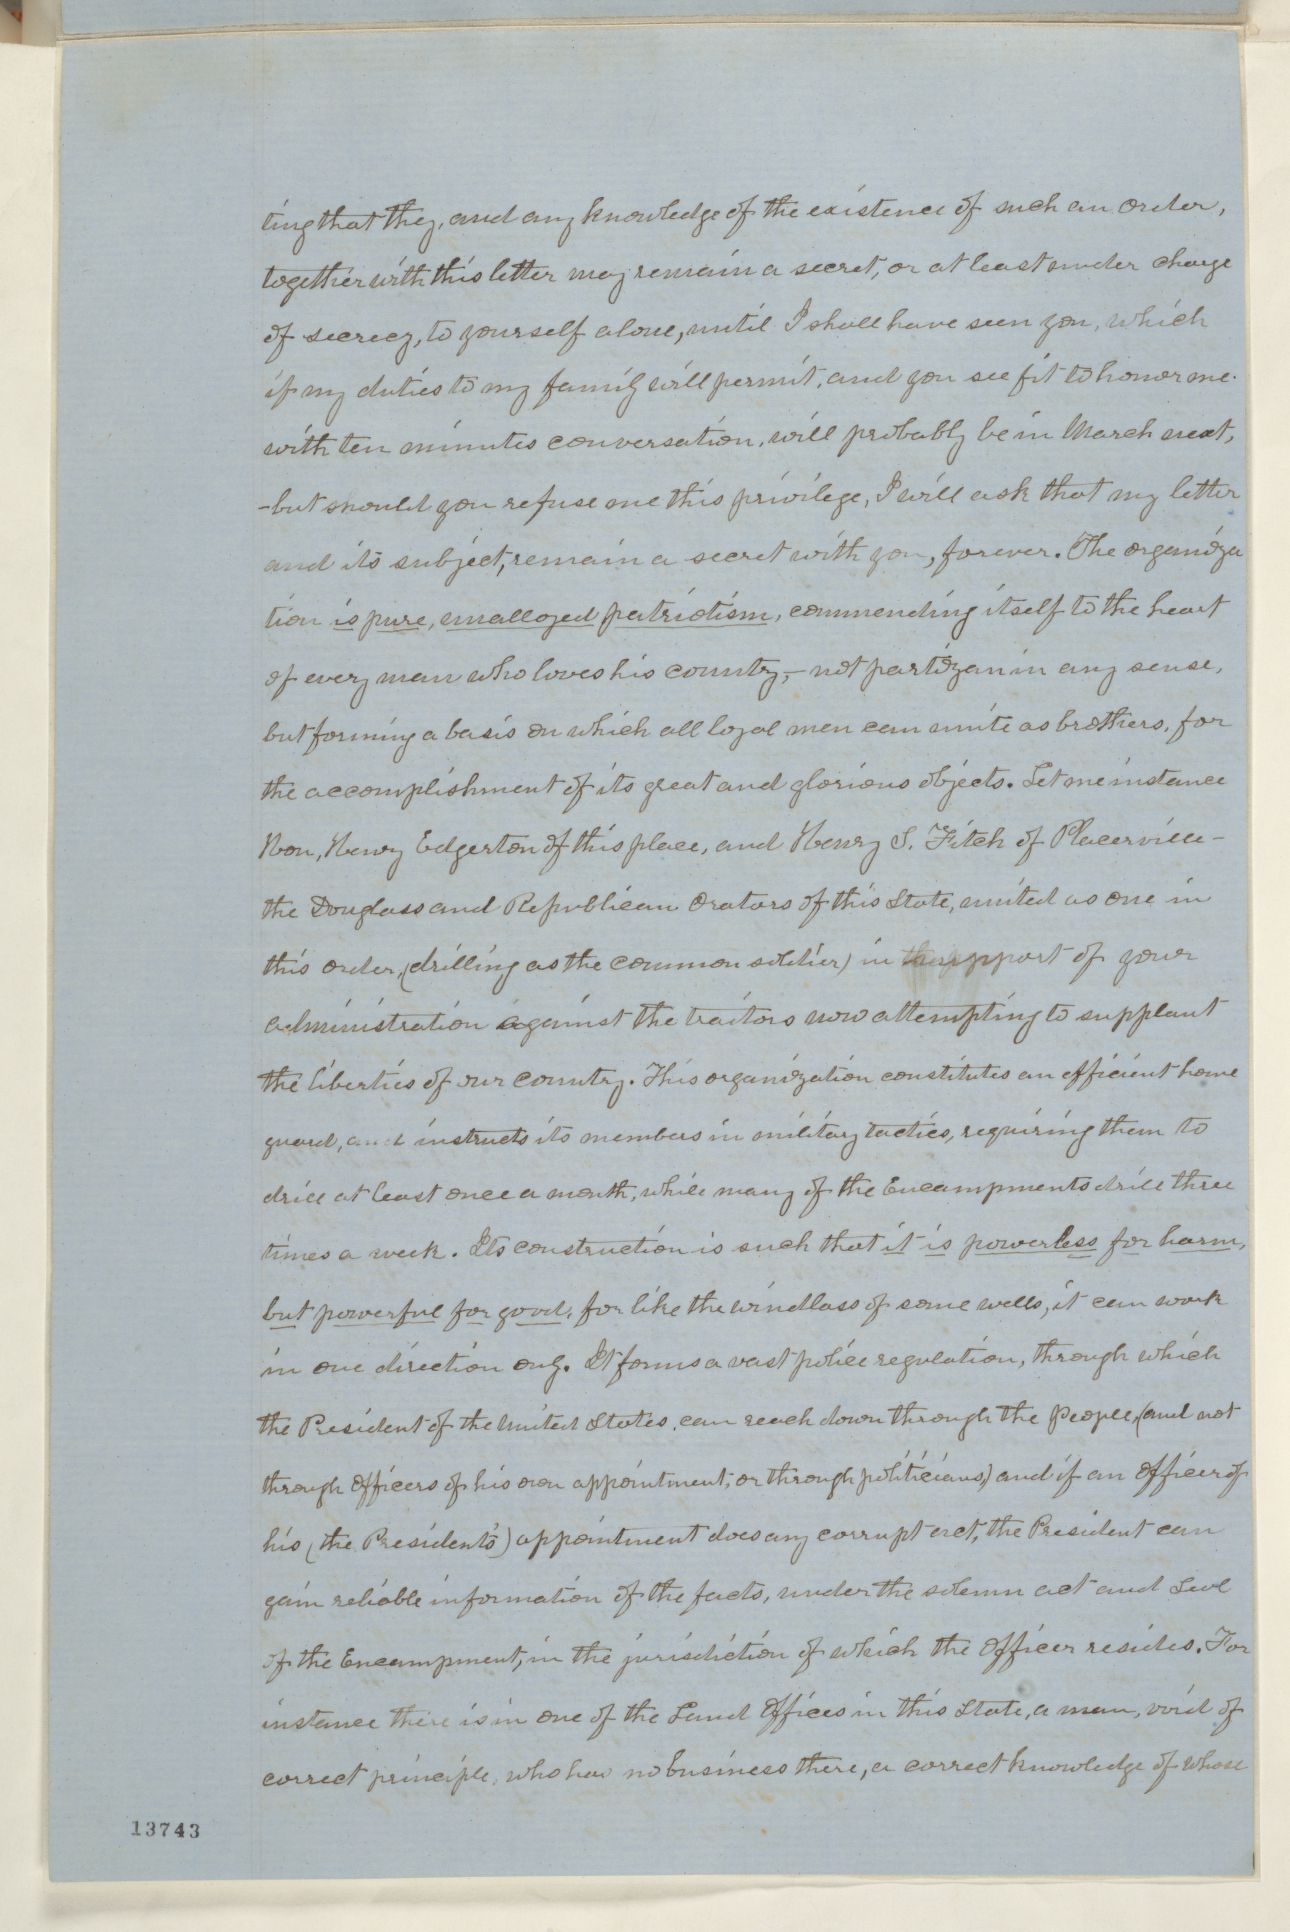 ting that they, and any knowledge of the existence of such an order,
together with this letter may remain a secret, or at least under charge
of secrecy, to yourself alone, until I shall have seen you, which
if my duties to my family will permit, and you see fit to honor me
with ten minutes conversation, will probably be in March next,
-but should you refuse me this privilege, I will ask that my letter
and its subject, remain a secret with you, forever. The organiza
tion is pure, unalloyed patriotism, commending itself to the heart
of every man who loves his country,- not partizan in any sense,
but forming a basis on which all loyal men can unite as brothers, for
the accomplishment of its great and glorious objects. Let me instance
Hon, Henry Edgerton of this place, and Henry S. Fitch of Placerville-
the Douglass and Republican Orators of this State, united as one in
this order, (drilling as the common soldier) in the support of your
administration against the traitors now attempting to supplant
the liberties of our Country. This organization constitutes an efficient home
guard, and instructs its members in military tactics, requiring them to
drill at least once a month, while many of the Encampments drill three
times a week. Its construction is such that it is powerless for harm,
but powerful for good, for like the windlass of some wells, it can work
in one direction only. It forms a vast police regulation, through which
the President of the United States, can reach down through the People, (and not
through Officers of his own appointment, or through politicians,) and if an Officer of
his (the President's) appointment does any corrupt act, the President can
gain reliable information of the facts, under the solemn act and Seal
of the Encampment, in the jurisdiction of which the Officer resides. For
instance there is in one of the Land Offices in this State, a man, void of
correct principle, who has no business there, a correct knowledge of whose
13743